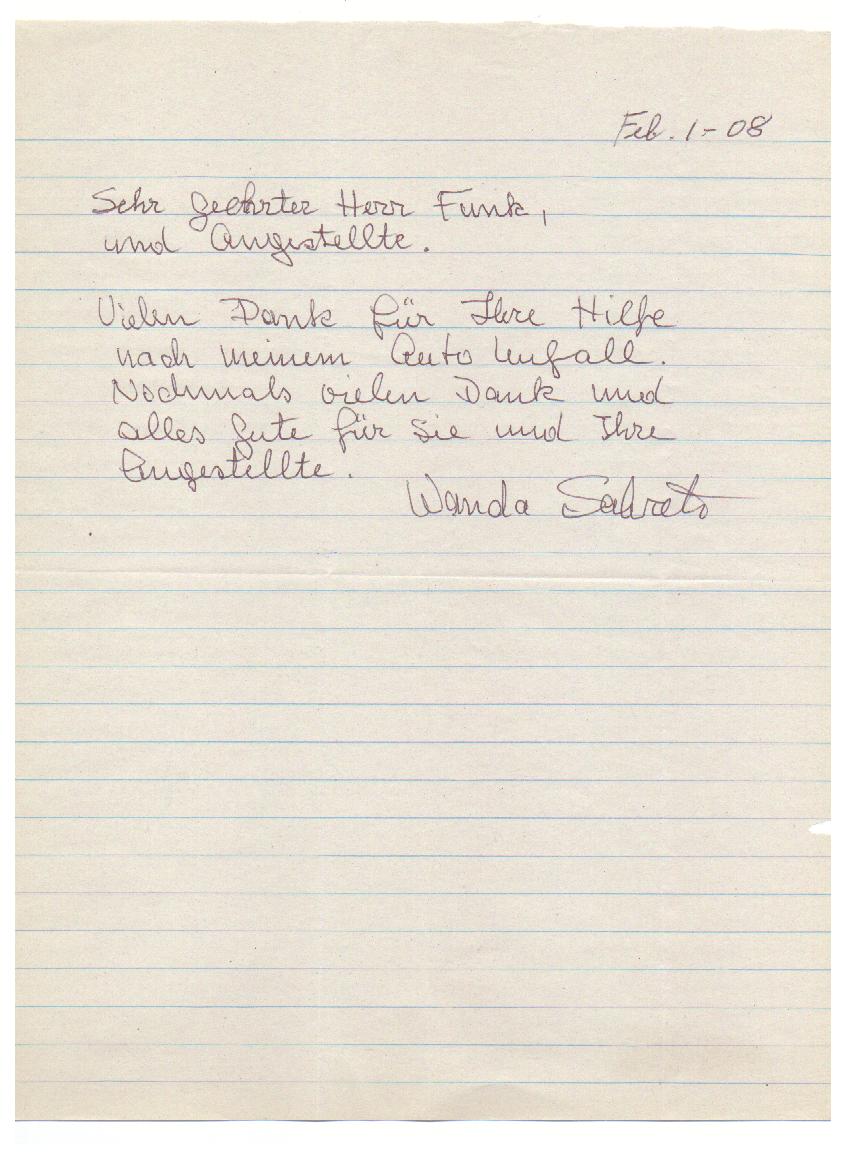 Feb. 1-08
Sehr geehrter Herr Funk,
und Angestellte.
Vielen Dank für Ihre Hilfe
nach meinem Auto Unfall.
Nochmals vielen Dank und
alles gute für Sie und Ihre
Angestellte.
Wanda